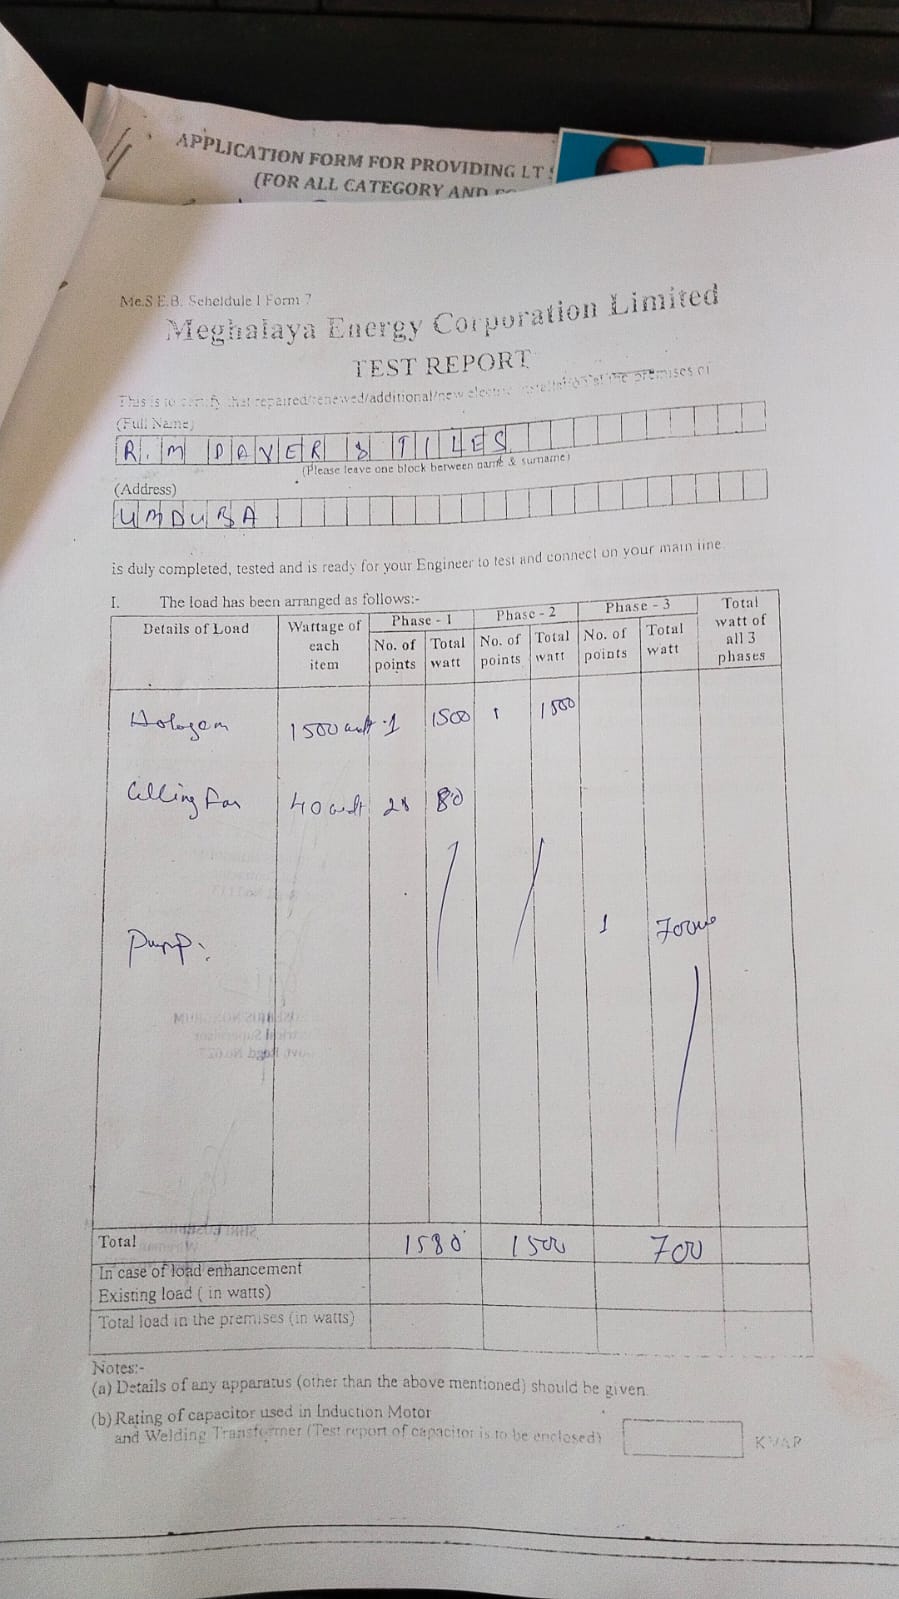 APPLICATION FORM FOR PROVIDING LT
(FOR ALL CATEGORY AND
Me.S.E.B. Scheldule I Form 7
Meghalaya Energy Corporation Limited
TEST REPORT
This is to certify that repaired/renewed/additional/new electric installation at the premises of
(Full Name)
R.M PAVER & TILES
(Please leave one block between name & surname)
(Address)
UMDUBA
is duly completed, tested and is ready for your Engineer to test and connect on your main line.
I. The load has been arranged as follows:-
Details of Load Wattage of each item Phase - 1 Phase - 2 Phase - 3 Total watt of all 3 phases
No. of points Total watt No. of points Total watt No. of points Total watt
Hologem 1500 watt 1 1500 1 1500
Cilling Fan 40 watt 2 80
Pump: 1 700
Total 1580 1500 700
In case of load enhancement
Existing load ( in watts)
Total load in the premises (in watts)
Notes:-
(a) Details of any apparatus (other than the above mentioned) should be given.
(b) Rating of capacitor used in Induction Motor
and Welding Transformer (Test report of capacitor is to be enclosed) KVAR